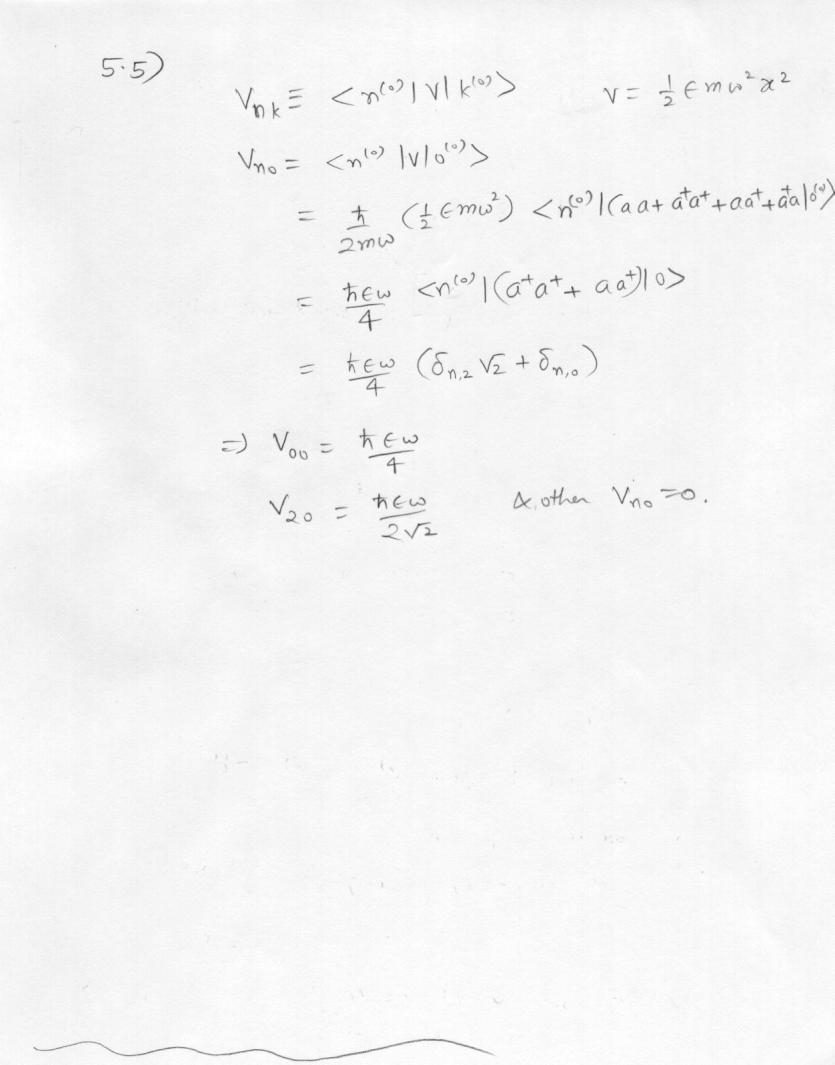 5.5)
V_{nk} ≡ <n^{(0)}|V|k^{(0)}> V = 1/2 ϵmω²x²
V_{n0} = <n^{(0)}|V|0^{(0)}>
= ħ/2mω (1/2 ϵmω²) <n^{(0)}|(aa + a⁺a⁺ + aa⁺ + a⁺a|0^{(0)}>
= ħϵω/4 <n^{(0)}|(a⁺a⁺ + aa⁺)|0>
= ħϵω/4 (δ_{n,2} √2 + δ_{n,0})
=> V_{00} = ħϵω/4
V_{20} = ħϵω/2√2 & other V_{n0} = 0.